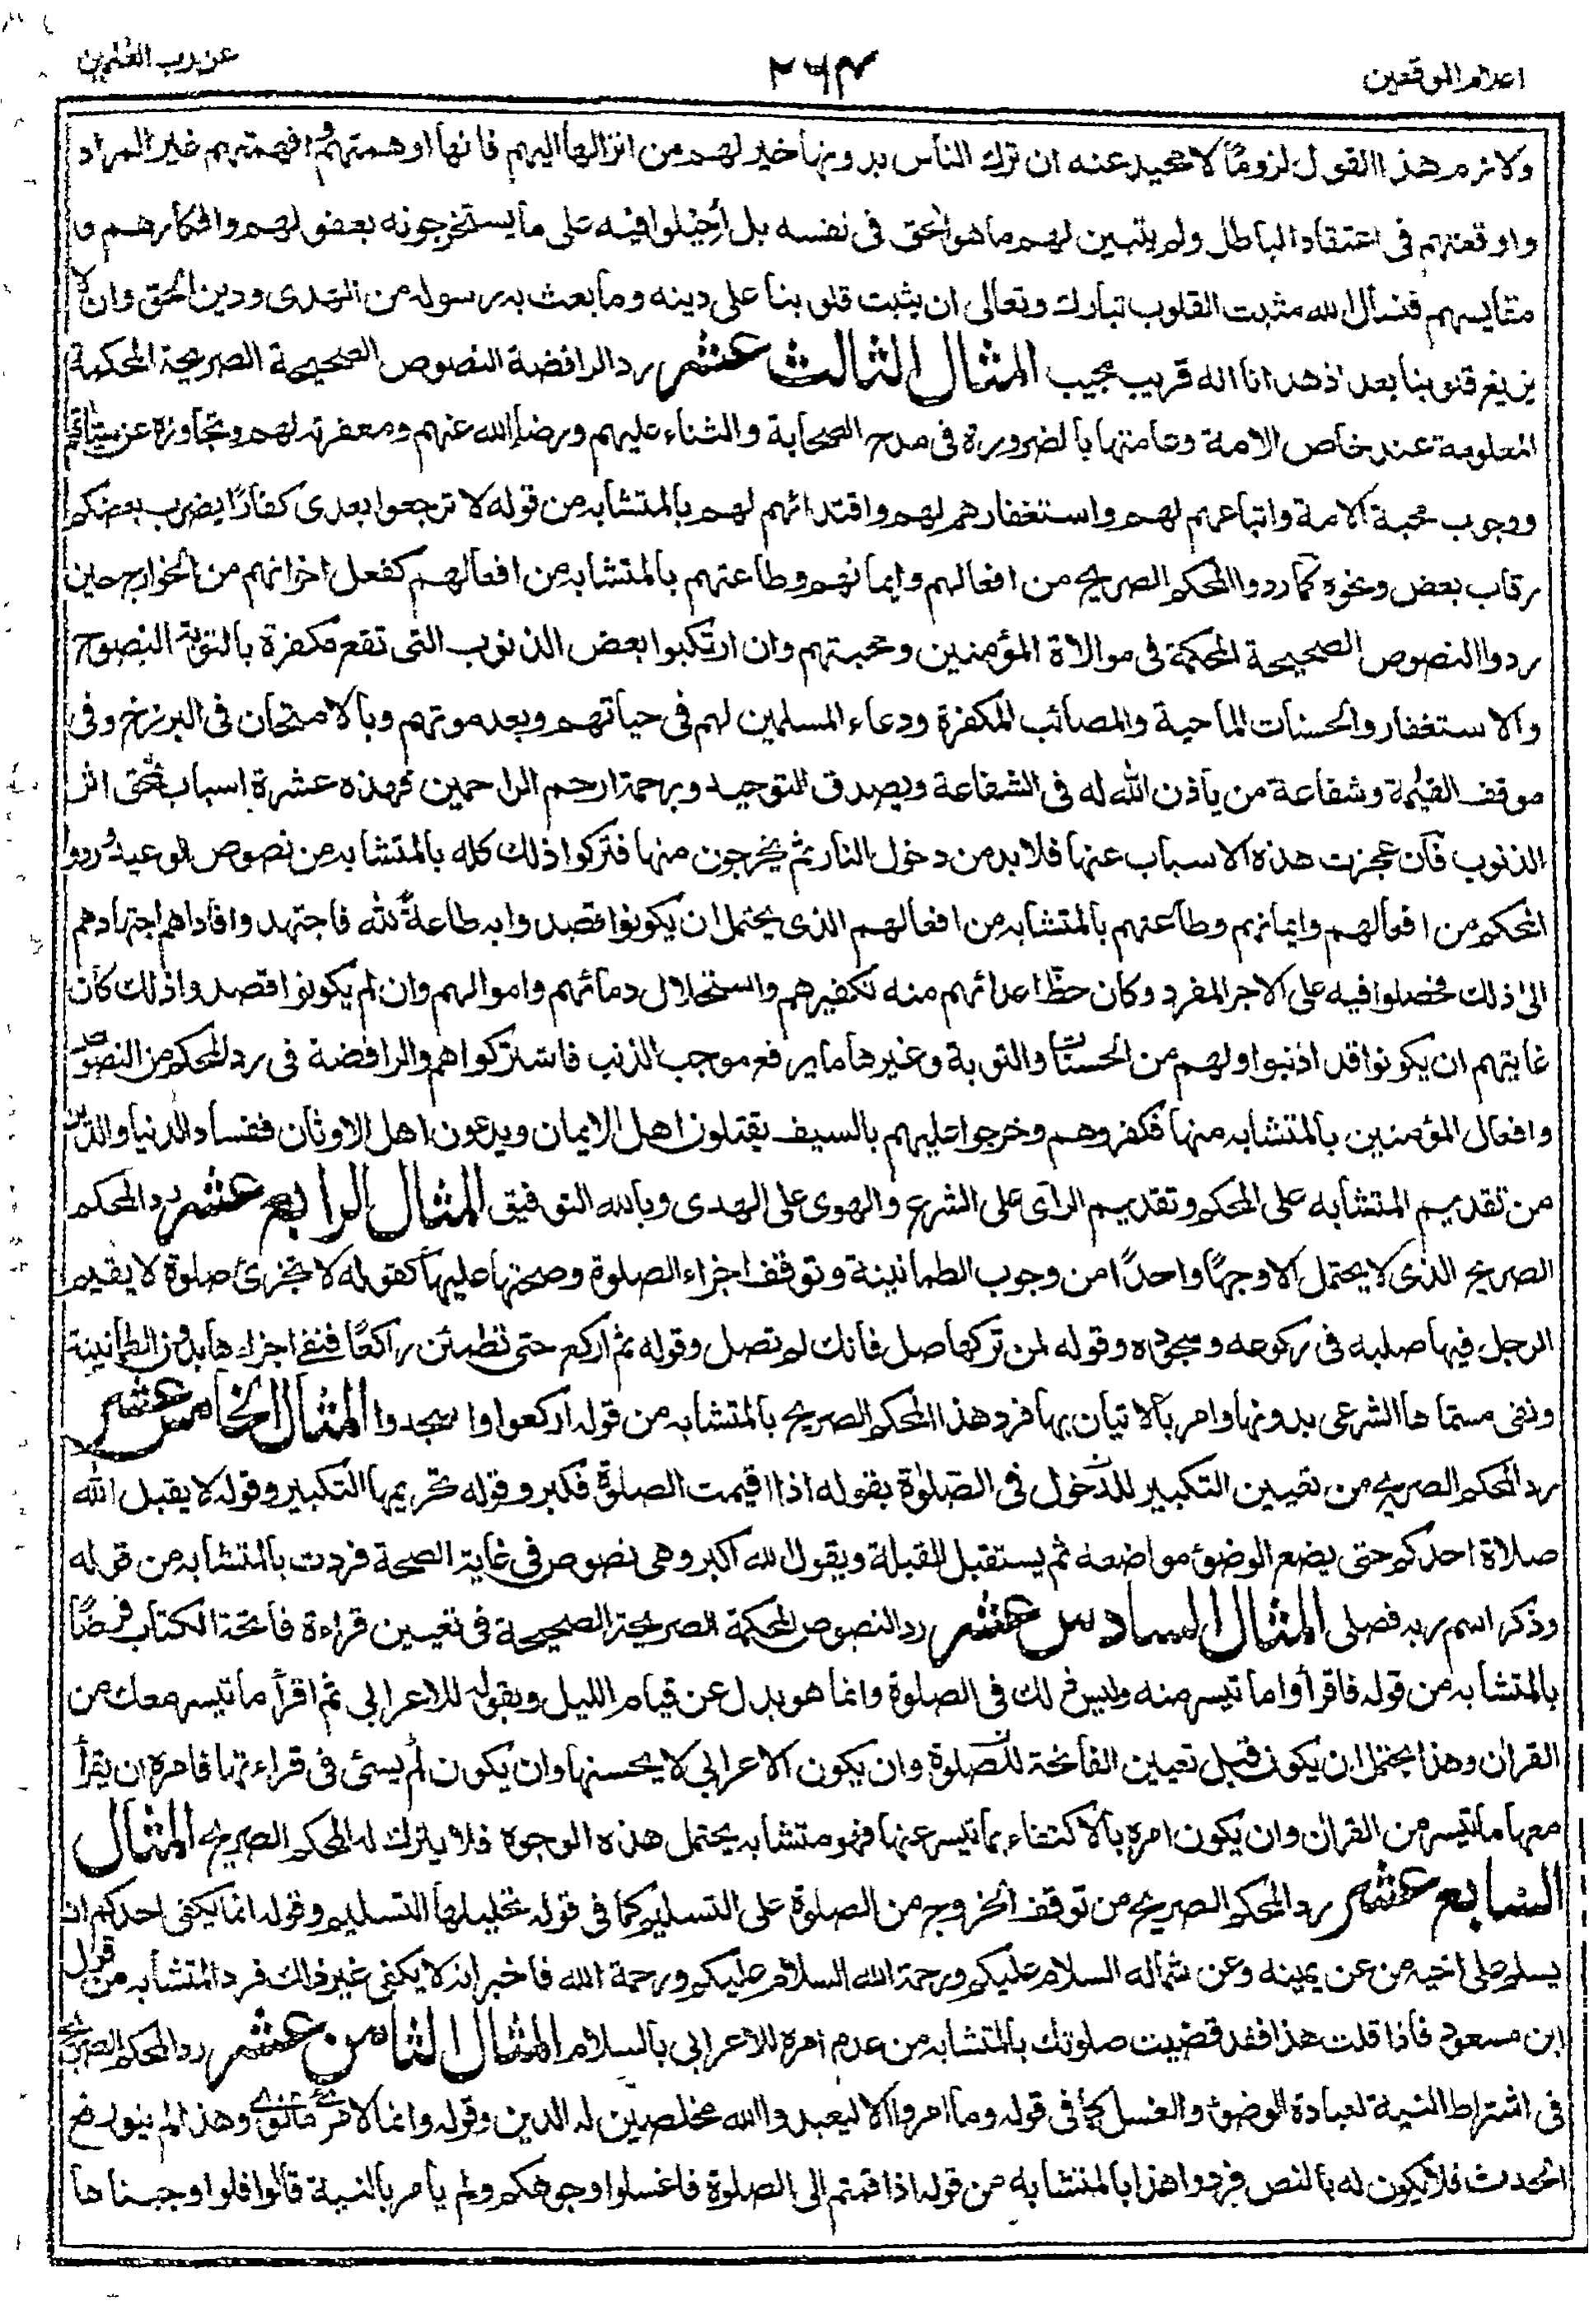 اعلام الموقعين
٢٦٣
عن رب العلمين
ولازم هذا القول لزومًا لا محيد عنه ان ترك الناس بدونها خير لهم من انزالها اليهم فانها اوهمتهم وافهمتهم غير المراد
واوقعتهم فى اعتقاد الباطل ولم يتبين لهم ما هو الحق فى نفسه بل أحيلوا فيه على ما يستخرجونه بعقولهم وافكارهم و
مقايسهم فنسأل الله مثبت القلوب تبارك وتعالى ان يثبت قلوبنا على دينه وما بعث به رسوله من الهدى ودين الحق وان لا
يزيغ قلوبنا بعد اذ هدانا انه قريب مجيب المثال الثالث عشر رد الرافضة النصوص الصحيحة الصريحة المحكمة
المعلومة عند خاص الامة وعامتها بالضرورة فى مدح الصحابة والثناء عليهم ورضا الله عنهم ومغفرته لهم وتجاوزه عن سيئاتهم
ووجوب محبة الامة واتباعهم لهم واستغفارهم لهم واقتدائهم لهم بالمتشابه من قوله لا ترجعوا بعدى كفارًا يضرب بعضكم
رقاب بعض ونحوه كما ردوا المحكم الصريح من افعالهم وايمانهم وطاعتهم بالمتشابه من افعالهم كفعل اخوانهم من الخوارج حين
ردوا النصوص الصحيحة المحكمة فى موالاة المؤمنين ومحبتهم وان ارتكبوا بعض الذنوب التى تقع مكفرة بالتوبة النصوح
والاستغفار والحسنات الماحية والمصائب المكفرة ودعاء المسلمين لهم فى حياتهم وبعد موتهم وبالامتحان فى البرزخ وفى
موقف القيمة وشفاعة من يأذن الله له فى الشفاعة وبصدق التوحيد وبرحمة ارحم الراحمين فهذه عشرة اسباب تمحق اثر
الذنوب فان عجزت هذه الاسباب عنها فلا بد من دخول النار ثم يخرجون منها فتركوا ذلك كله بالمتشابه من نصوص الوعيد وردوا
المحكم من افعالهم وايمانهم وطاعتهم بالمتشابه من افعالهم الذى يحتمل ان يكونوا قصدوا به طاعة لله فاجتهدوا فاداهم اجتهادهم
الى ذلك فحصلوا فيه على الاجر المفرد وكان حظ اعدائهم منه تكفيرهم واستحلال دمائهم واموالهم وان لم يكونوا قصدوا ذلك كان
غايتهم ان يكونوا قد اذنبوا ولهم من الحسنات والتوبة وغيرها ما يرفع موجب الذنب فاشتركوا هم والرافضة فى رد المحكم من النصوص
وافعال المؤمنين بالمتشابه منها فكفروهم وخرجوا عليهم بالسيف يقتلون اهل الايمان ويدعون اهل الاوثان ففساد الدنيا والدين
من تقديم المتشابه على المحكم وتقديم الرأى على الشرع والهوى على الهدى وبالله التوفيق المثال الرابع عشر رد المحكم
الصريح الذى لا يحتمل الا وجهًا واحدًا من وجوب الطمانينة وتوقف اجزاء الصلوة وصحتها عليها كقوله لا تجزئ صلوة لا يقيم
الرجل فيها صلبه فى ركوعه وسجوده وقوله لمن تركها صل فانك لم تصل وقوله ثم اركع حتى تطمئن راكعًا فنفى اجزاءها بدون الطمانينة
ونفى مسماها الشرعى بدونها وامر بالاتيان بها فرد هذا المحكم الصريح بالمتشابه من قوله اركعوا واسجدوا المثال الخامس عشر
رد المحكم الصريح من تعيين التكبير للدخول فى الصلوٰة بقوله اذا اقيمت الصلوة فكبر وقوله تحريمها التكبير وقوله لا يقبل الله
صلاة احدكم حتى يضع الوضوء مواضعه ثم يستقبل القبلة ويقول الله اكبر وهى نصوص فى غاية الصحة فردت بالمتشابه من قوله
وذكر اسم ربه فصلى المثال السادس عشر رد النصوص المحكمة الصريحة الصحيحة فى تعيين قراءة فاتحة الكتاب فرضًا
بالمتشابه من قوله فاقرأوا ما تيسر منه وليس ذلك فى الصلوة وانما هو بدل عن قيام الليل وبقوله للاعرابى ثم اقرأ ما تيسر معك من
القرآن وهذا يحتمل ان يكون قبل تعيين الفاتحة للصلوة وان يكون الاعرابى لا يحسنها وان يكون لم يسئ فى قراءتها فامره ان يقرأ
معها ما تيسر من القرآن وان يكون امره بالاكتفاء بما تيسر عنها فهو متشابه يحتمل هذه الوجوه فلا يترك له المحكم الصريح المثال
السابع عشر رد المحكم الصريح من توقف الخروج من الصلوة على التسليم كما فى قوله تحليلها التسليم وقوله انما يكفى احدكم ان
يسلم على اخيه من عن يمينه وعن شماله السلام عليكم ورحمة الله السلام عليكم ورحمة الله فاخبر انه لا يكفى غير ذلك فرد المتشابه من قول
ابن مسعود فاذا قلت هذا فقد قضيت صلوتك بالمتشابه من عدم امره للاعرابى بالسلام المثال الثامن عشر رد المحكم الصريح
فى اشتراط النية لعبادة الوضوء والغسل كما فى قوله وما امروا الا ليعبدوا الله مخلصين له الدين وقوله وانما لامرئ ما نوى وهذا لم ينو رفع
الحدث فلا يكون له بالنص فردوا هذا بالمتشابه من قوله اذا قمتم الى الصلوة فاغسلوا وجوهكم ولم يأمر بالنية قالوا فلو اوجبناها